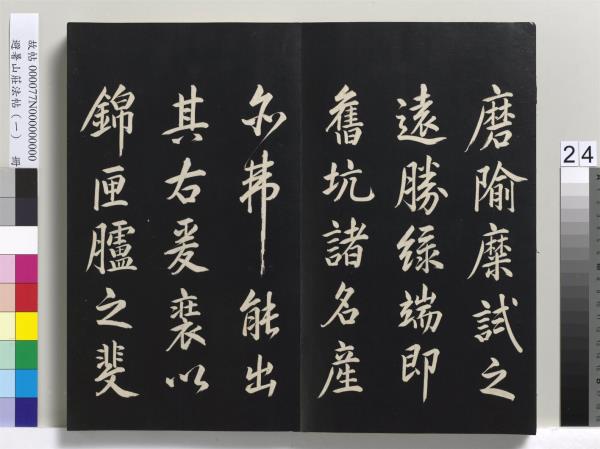 磨隃糜試之
遠勝綠端即
舊坑諸名產
亦弗能出
其右爰裝以
錦匣臚之斐
24
故帖 000077N000000000
避暑山莊法帖（一）